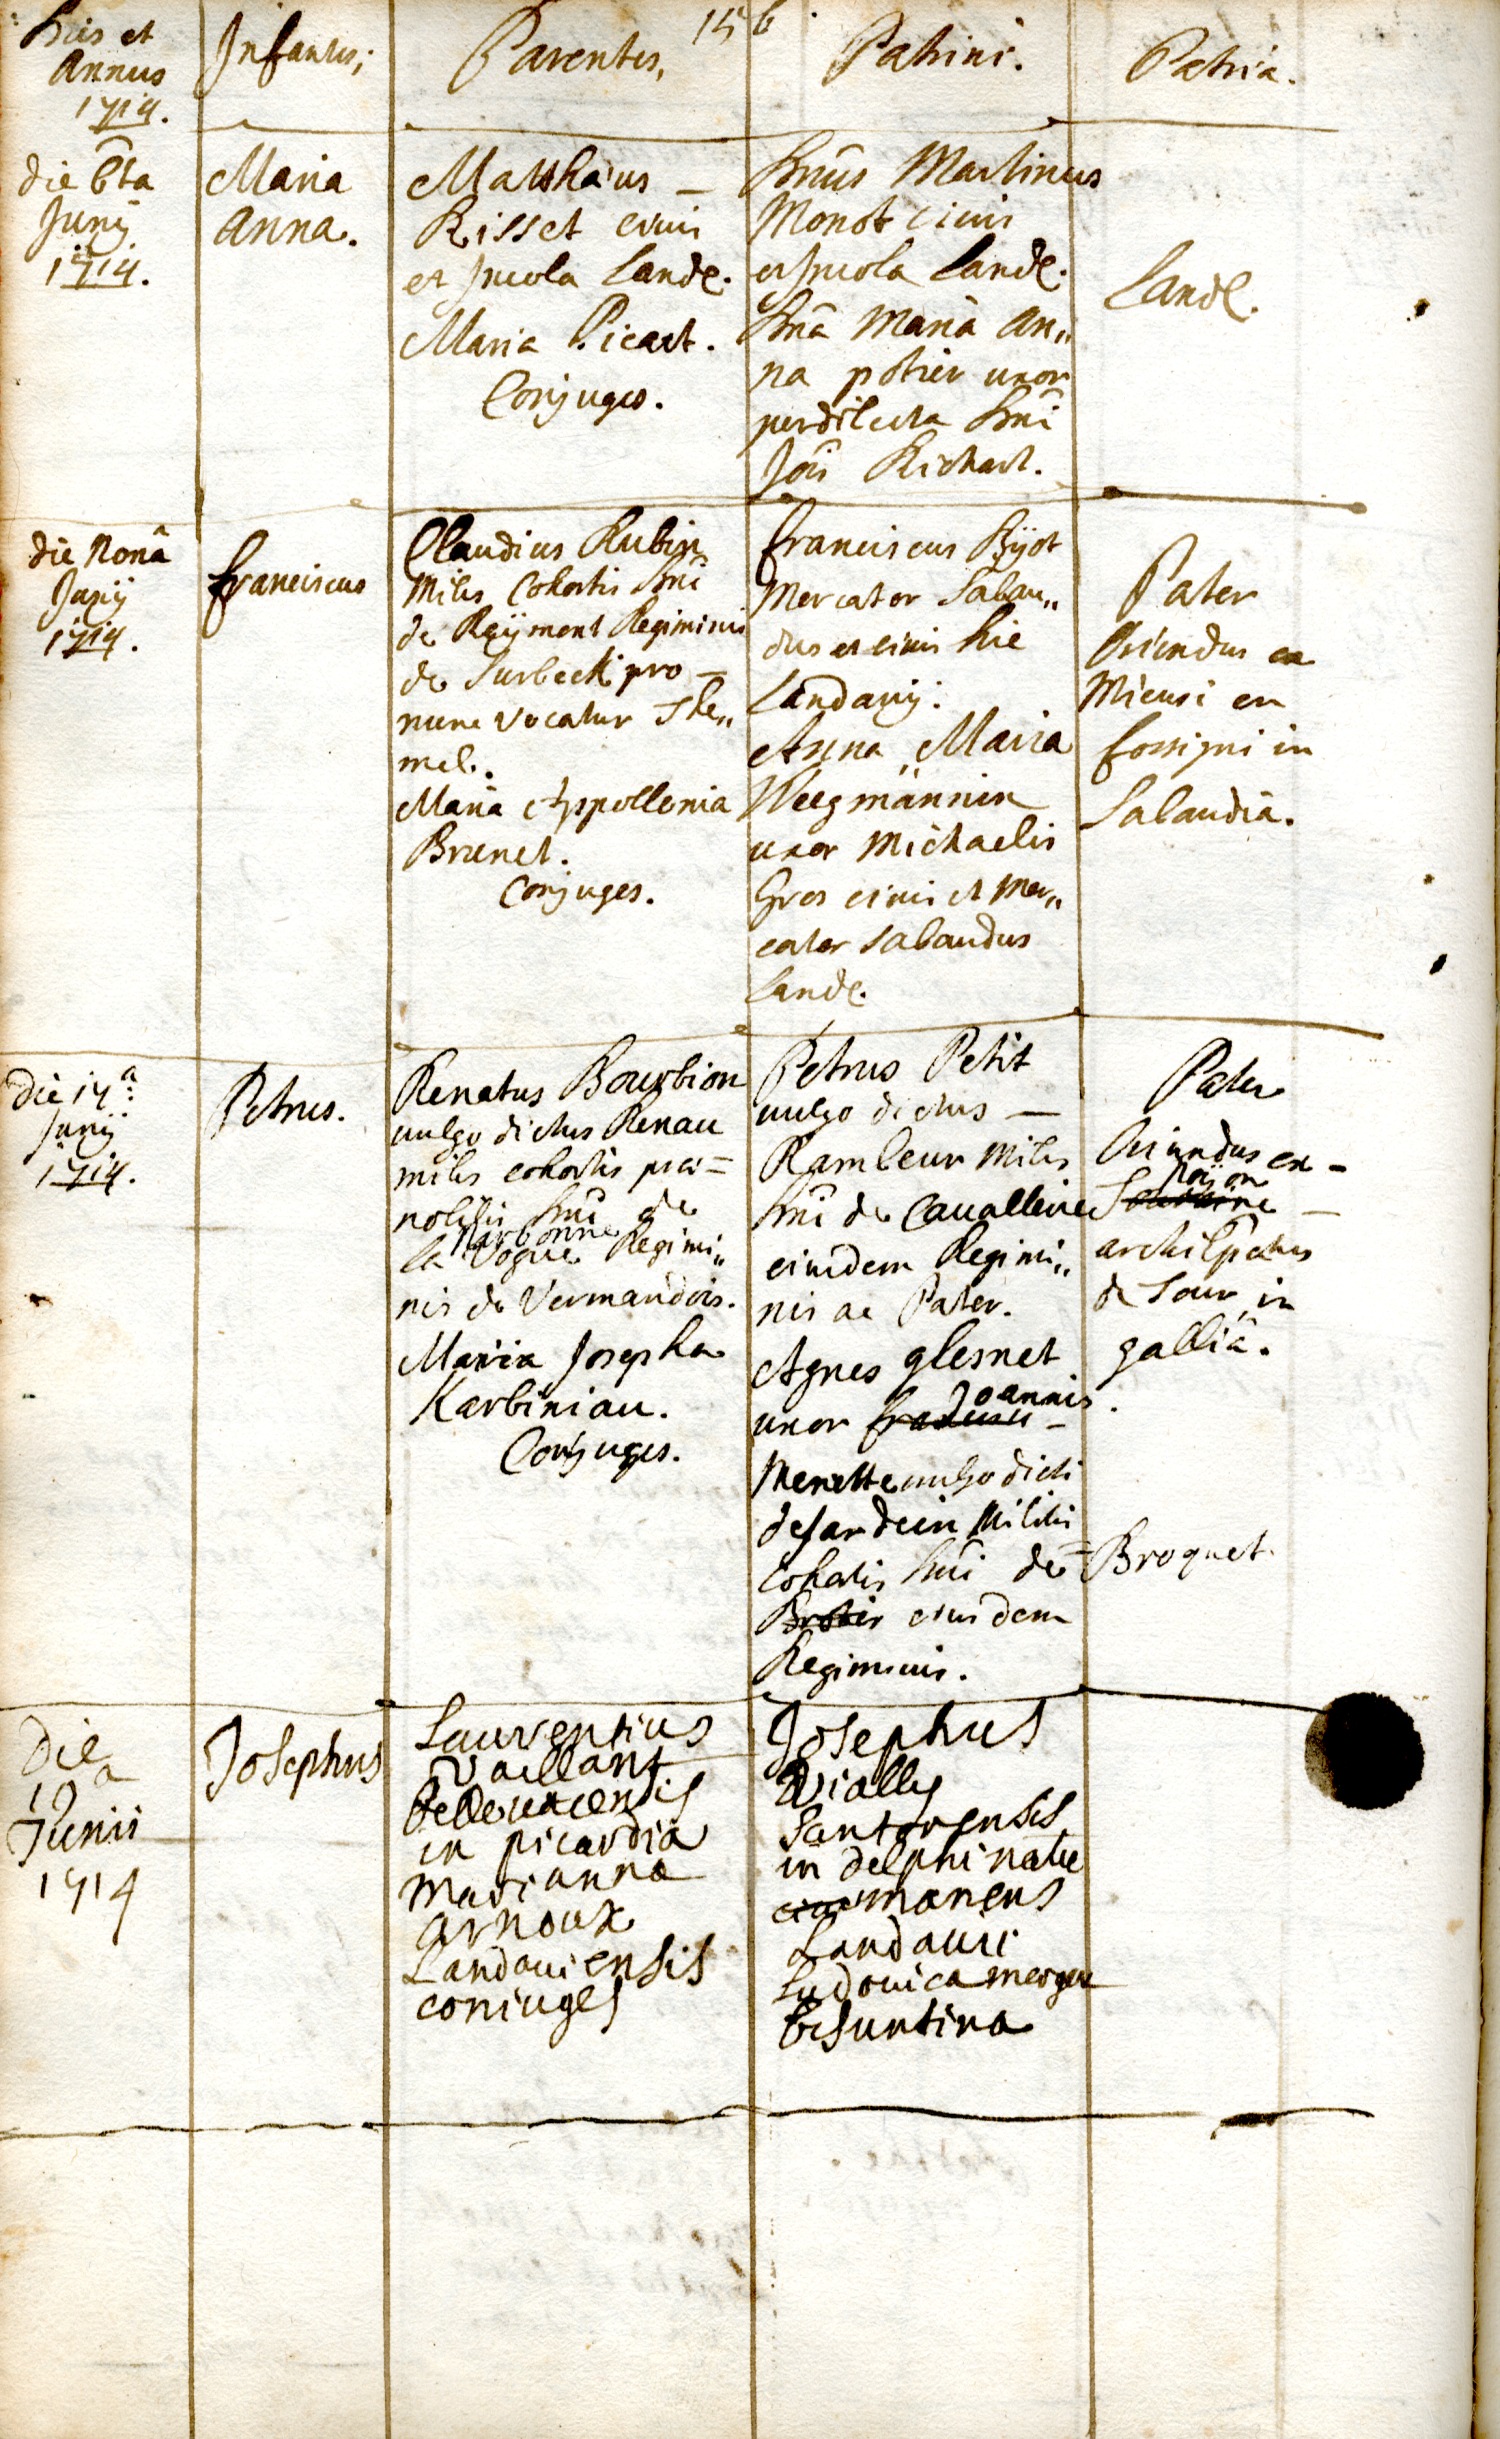 156
Dies et
Annus
1714.
Infantes;
Parentes,
Patrini.
Patria.
die 6ta
Junij
1714.
Maria
Anna.
Matthæus —
Risset civis
et Incola Land.
Maria Picart.
Conjuges.
Dnûs Martinus
Monot civis
et Incola Land.
Dnâ Maria An„
na potier uxor
perdilecta Dnî
Jôis Richart.
Land.
die Nonâ
Junij
1714.
franciscus
Claudius Rubin
Miles Cohortis Dnî
de Reÿmont Regiminis
de Surbeck pro —
nunc vocatur The„
mel.
Maria Appollonia
Brunet.
Conjuges.
franciscus Bÿot
Mercator Sabau„
dus et civis hic
Landavij.
Anna Maria
Weegmännin
uxor Michaelis
Gros civis et Mer„
cator Sabaudus
Land.
Pater
Oriundus ex
Micusi en
fossigni in
Sabaudiâ.
Die 14a
Junij
1714.
Petrus.
Renatus Bourbion
vulgo dictus Renau
miles cohortis præ=
nobilis Dnî de
Narbonne
la Vogue Regimi„
nis de Vermandois.
Maria Josepha
Karbiniau.
Conjuges.
Petrus Petit
vulgo dictus —
Rambeur Miles
Dnî de Cavallerie
eiusdem Regimi„
nis ac Pater.
Agnes glesnet
Joannis
uxor francisci —
Menette vulgo dicti
desardein Militis
Cohortis Dnî de =
Broter eiusdem
Regiminis.
Pater
Oriundus ex —
Noÿon
archiepatus
de Tour in
galliâ.
Broquet.
Die
19a
Junii
1714
Josephus
Laurentius
Vaillant
Bellovacensis
in picardia
marianna
arnoux
Landaviensis
coniuges
Josephus
Vially
Santorensis
in delphinatu
manens
Landavii
Ludovica merger
bisuntina